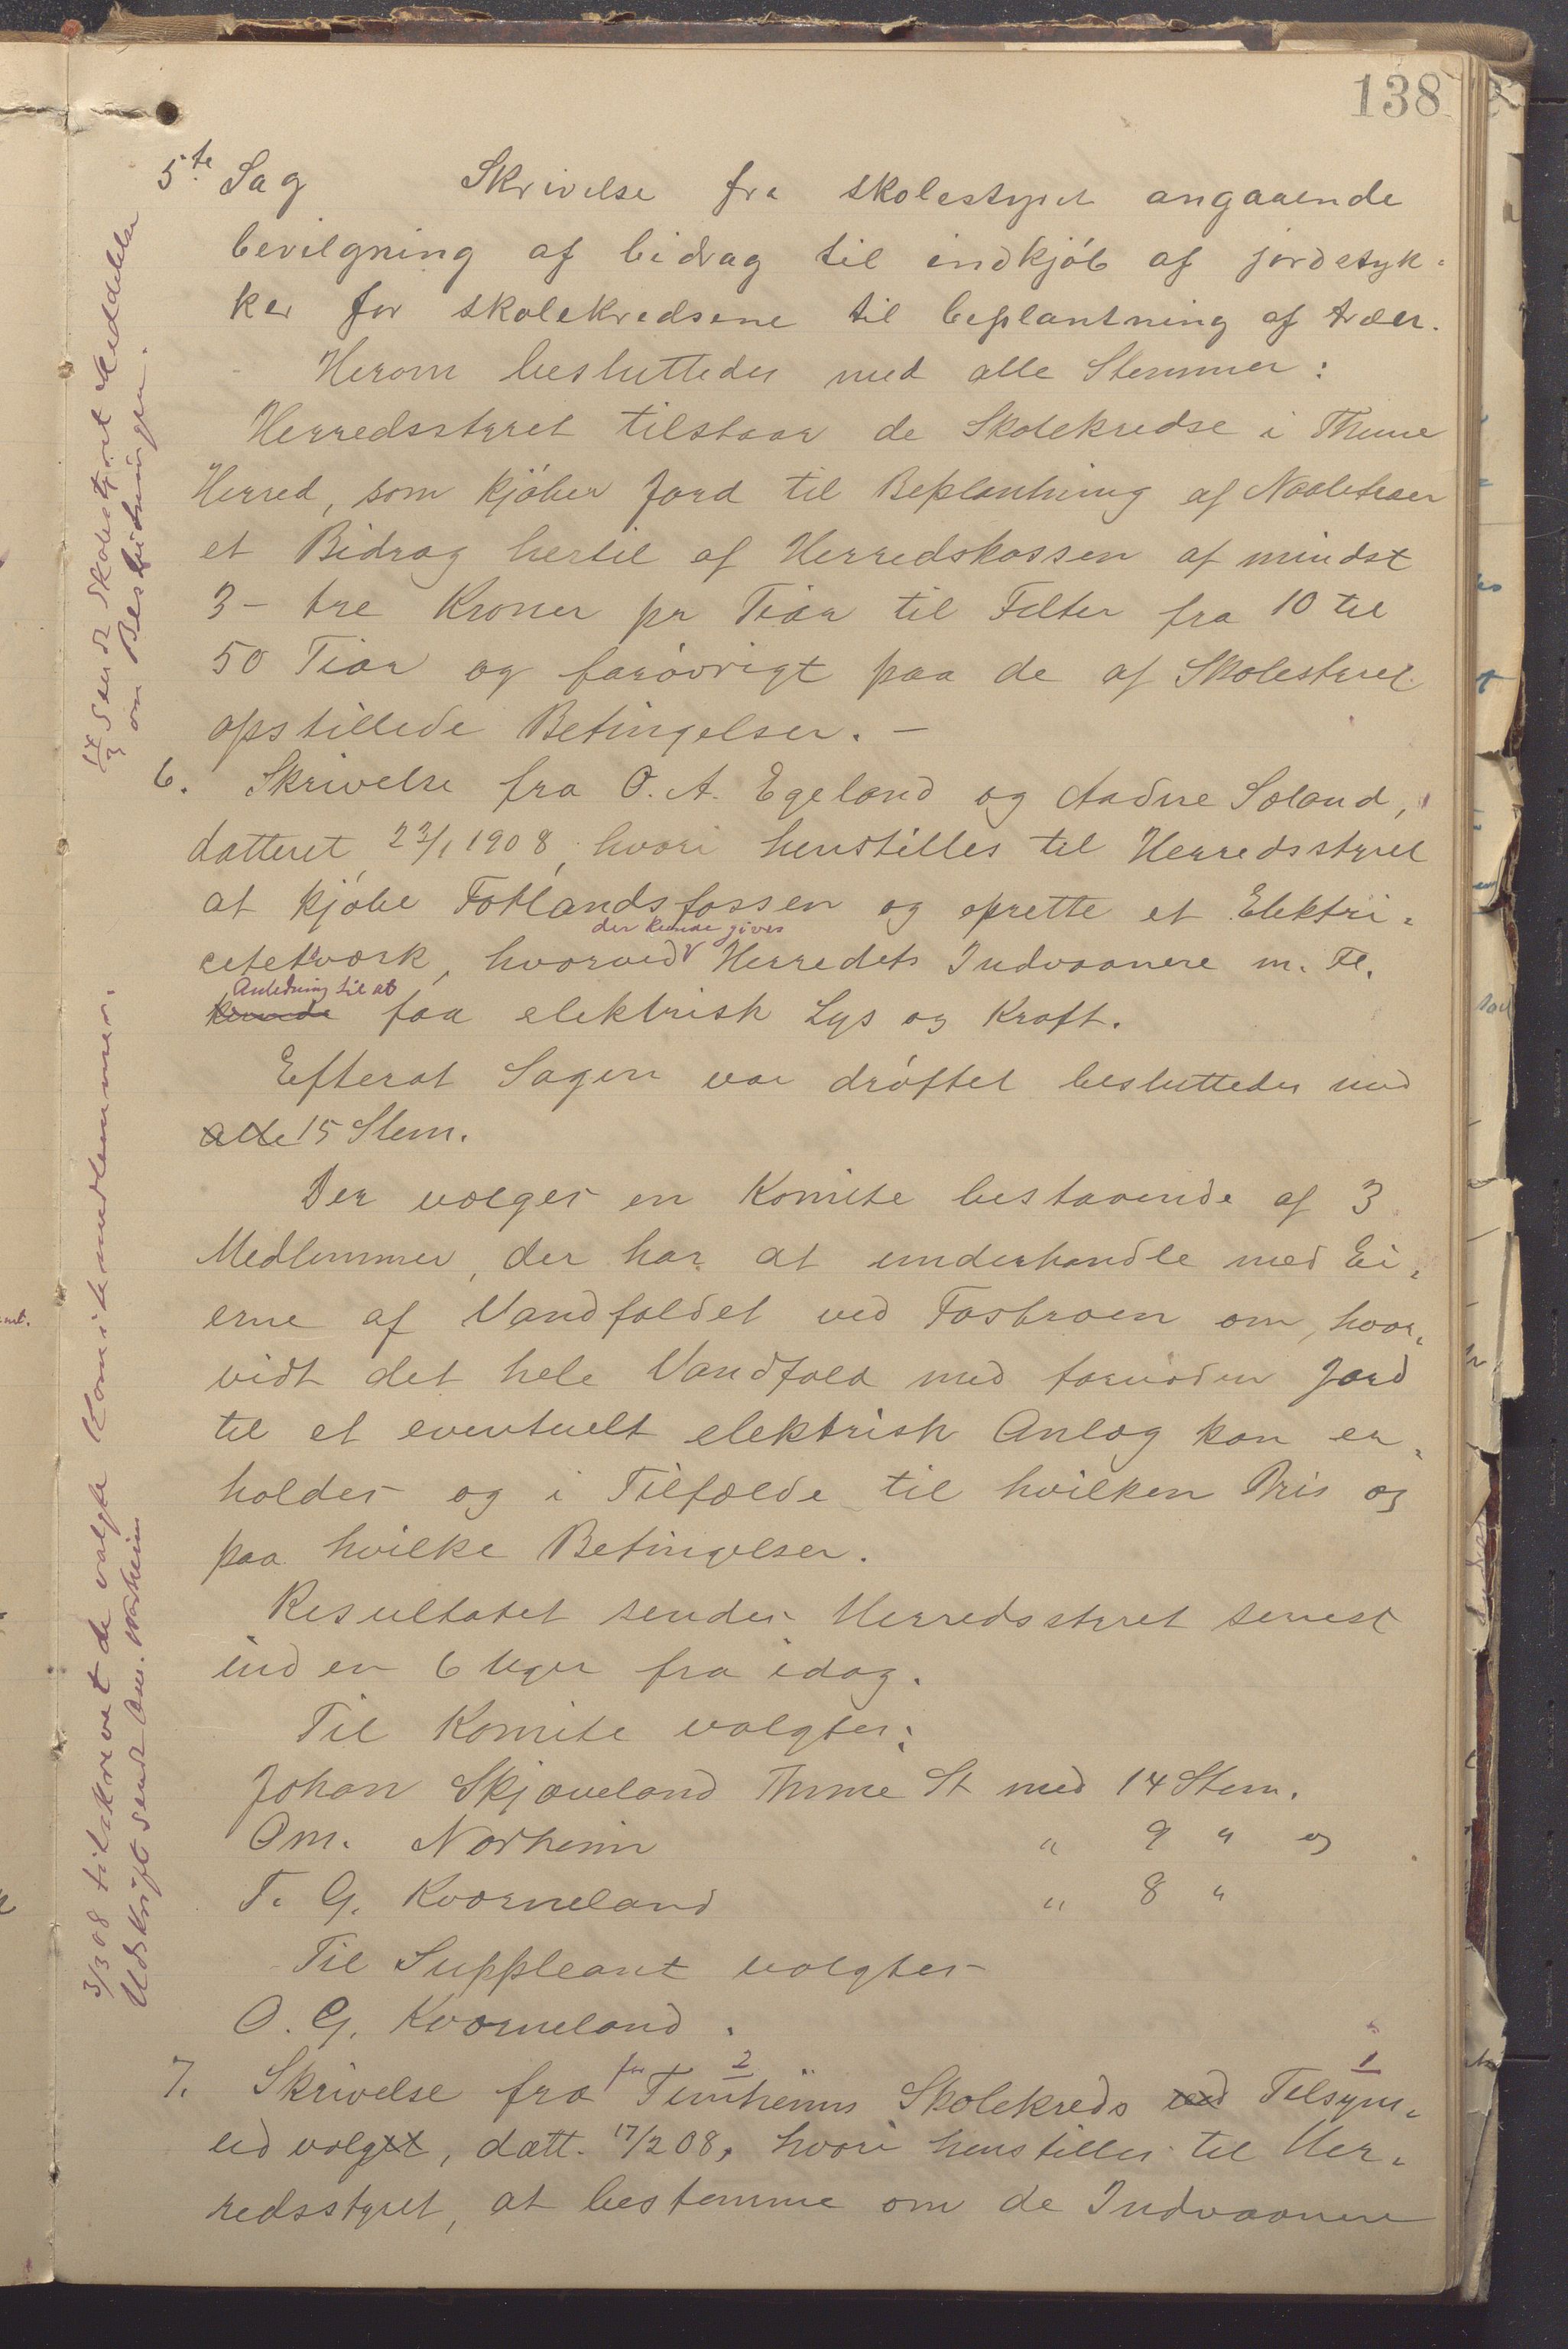 138
5te Sag Skrivelse fra skolestyret angaaende
bevilgning af bidrag til indkjøb af jordstyk-
ker for skolekredsene til beplantning af træer.
Herom besluttedes med alle Stemmer:
Herredsstyret tilstaar de Skolekredse i Thime
Herred, som kjøber Jord til Beplantning af Naaletræer
et Bidrag hertil af Herredskassen af mindst
3 - tre Kroner pr Tiar til Felter fra 10 til
50 Tiar og forøvrigt paa de af Skolestyret
opstillede Betingelser. —
17/3 Sendt Skolestyret Meddelelse
om Beslutningen.
6. Skrivelse fra O. A. Egeland og Aadne Soland,
datteret 23/1 1908, hvori henstilles til Herredsstyret
at kjøbe Fotlandsfossen og oprette et Elektri-
der kunde gives
citetsværk, hvorved Herredets Indvaanere m. Fl.
Anledning til at
kunde faa elektrisk Lys og Kraft.
Efterat Sagen var drøftet besluttedes med
alle 15 Stem.
Der vælges en Komite bestaaende af 3
Medlemmer, der har at underhandle med Ei-
erne af Vandfaldet ved Fosbroen om, hvor-
vidt det hele Vandfald med fornøden Jord
til et eventuelt elektrisk Anlæg kan er-
holdes og i Tilfælde til hvilken Pris og
paa hvilke Betingelser.
Resultatet sendes Herredsstyret senest
inden 6 Uger fra idag.
Til Komite valgtes:
Johan Skjæveland Thime St med 14 Stem.
Om. Norheim " 9 " og
T. G. Kværneland " 8 "
Til Suppleant valgtes
O. G. Kværneland.
3/3 08 tilskrevet de valgte Komitemedlemmer.
Udskrift sendt Om. Norheim
for 2 1
7. Skrivelse fra Timeheims Skolekreds ved Tilsyns-
udvalget, datt. 17/2 08, hvori henstilles til Her-
redsstyret, at bestemme om de Indvaanere